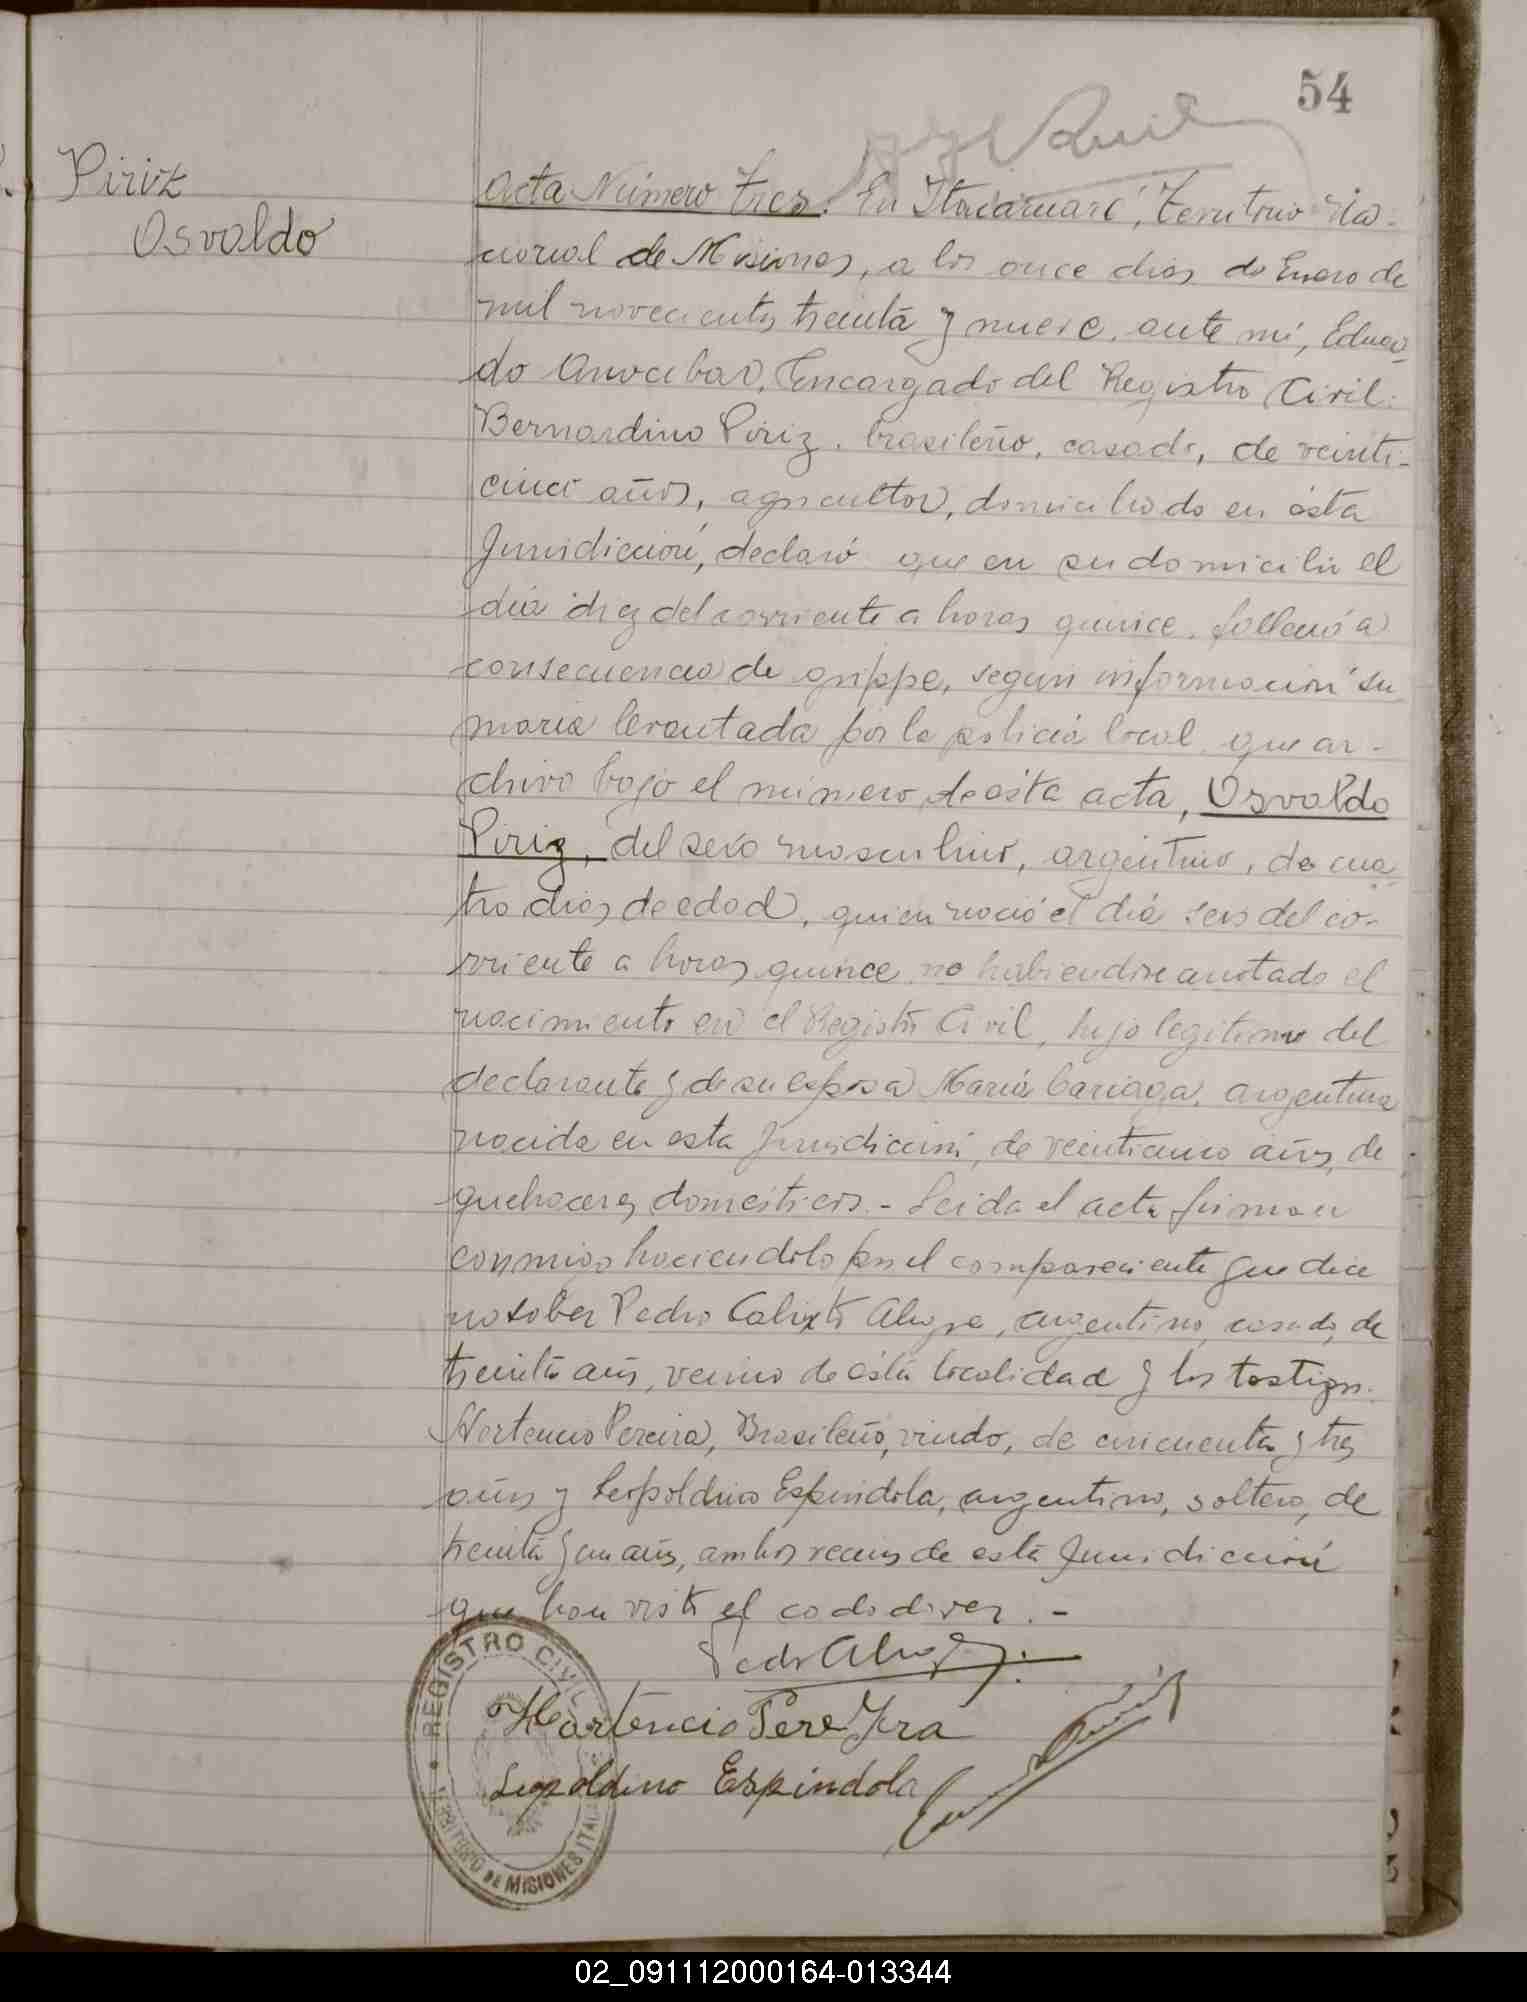 54
Piriz
Osvaldo
Acta Número tres. En Itacaruaré, Territorio Na-
cional de Misiones, a los once dias de Enero de
mil novecientos treinta y nueve, ante mi, Eduar-
do Arrocibar, Encargado del Registro Civil:
Bernardino Piriz, brasileño, casado, de veinti-
cinco años, agricultor, domiciliado en ésta
Jurisdicción, declaró que en su domicilio el
día diez del corriente a horas quince, falleció a
consecuencia de grippe, según información su
maria levantada por la policia local, que ar-
chivo bajo el número de ésta acta, Osvaldo
Piriz, del sexo masculino, argentino, de cua-
tro dias de edad, quien nació el día seis del co-
rriente a horas quince no habiendose anotado el
nacimiento en el Registro Civil, hijo legitimo del
declarante y de su esposa María Cariaga, argentina
nacida en esta Jurisdicción, de veinticinco años, de
quehaceres domésticos.- Leida el acta firman
conmigo haciendolo por el compareciente que dice
no saber Pedro Calixto, argentino, casado, de
treinta años, vecino de ésta localidad y los testigos.
Hortencio Pereira, Brasileño, viudo, de cincuenta y tres
años y Leopoldino Espindola, argentino, soltero, de
treinta y un años, ambos vecinos de esta Jurisdicción
que han visto el cadaver.-
Pedro
Hortencio Pereyra
Leopoldino Espindola
REGISTRO CIVIL
TERRITORIO DE MISIONES
02_091112000164-013344